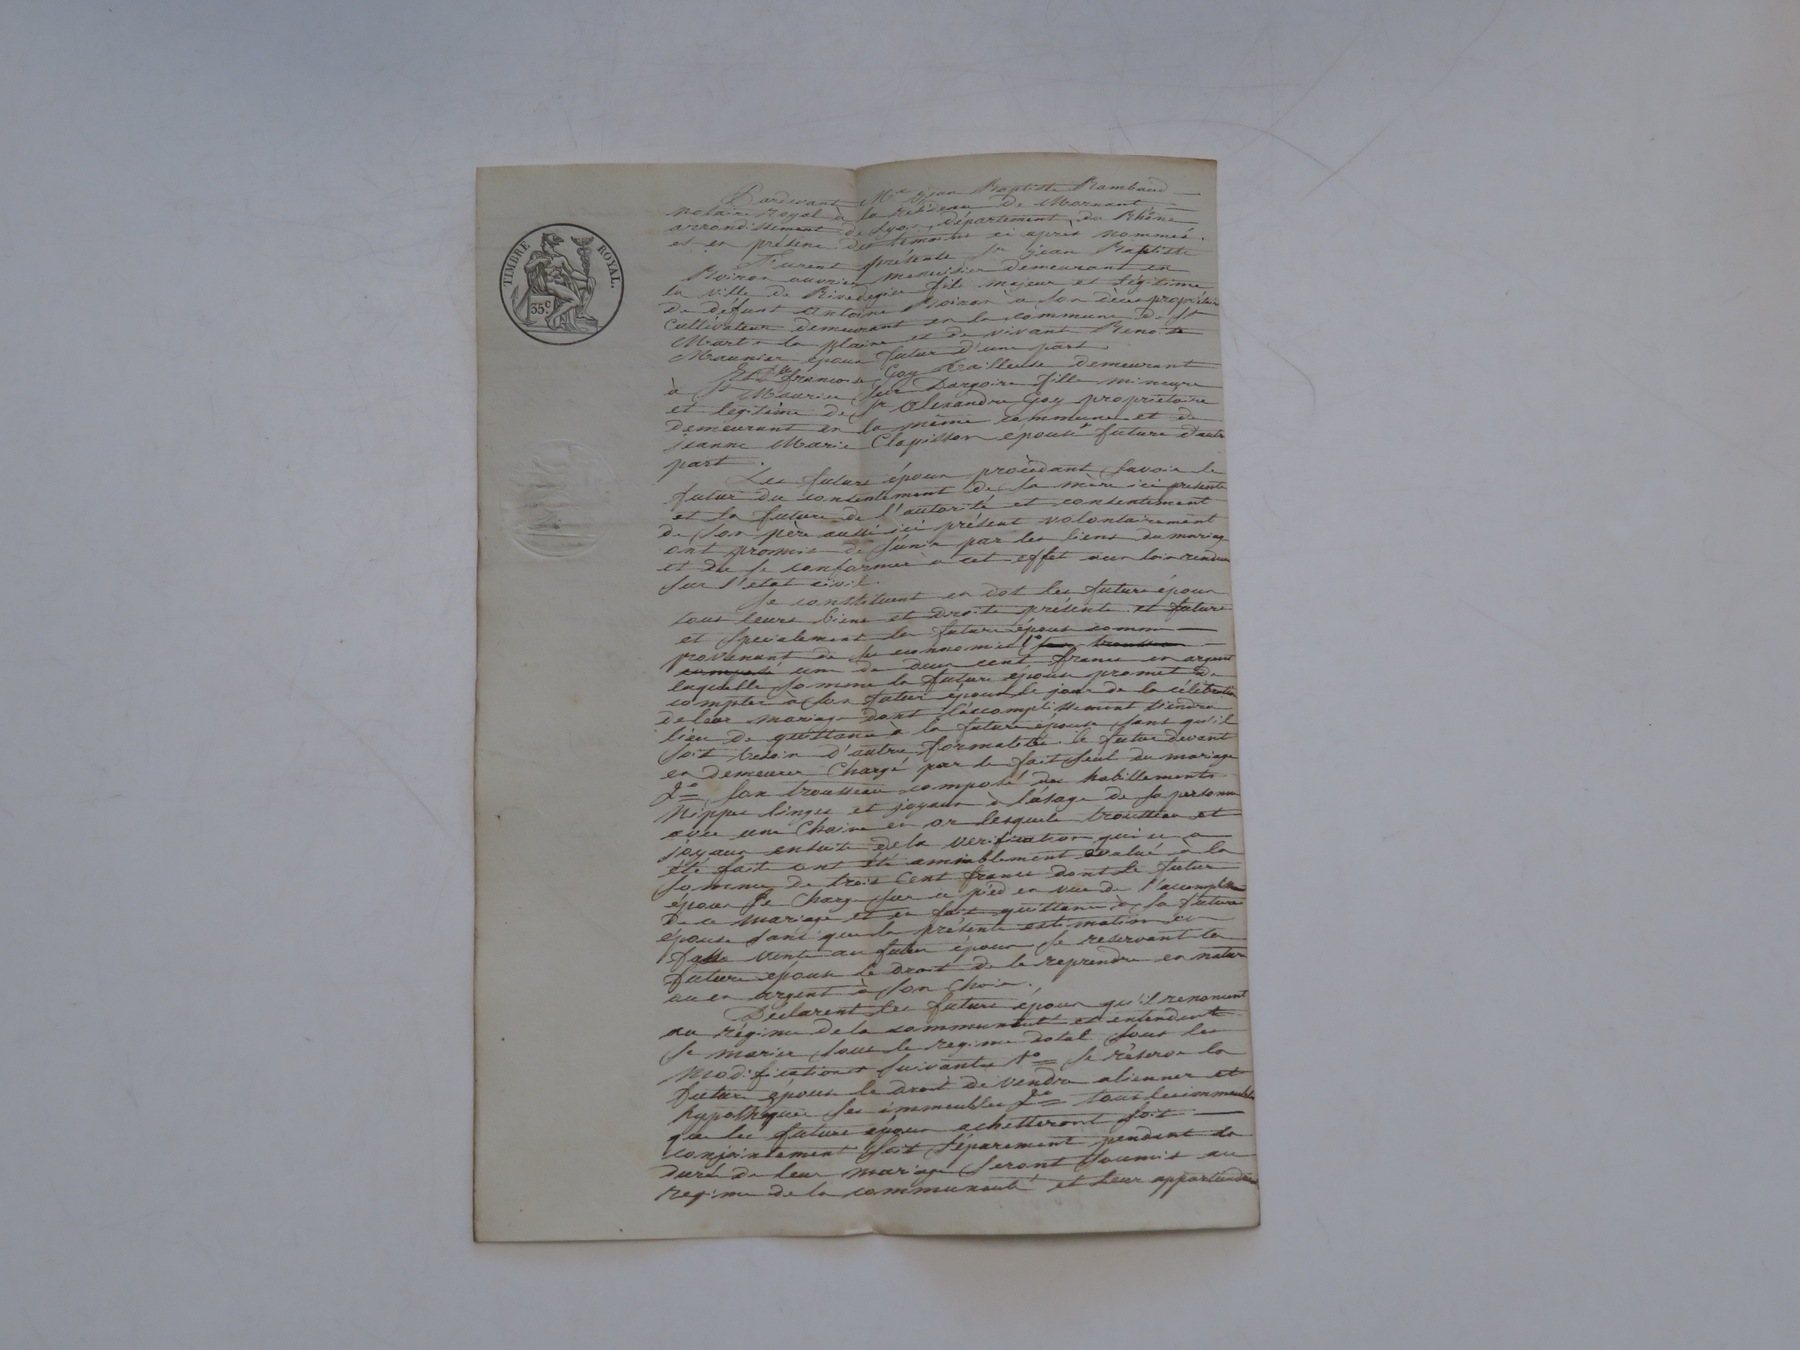 TIMBRE ROYAL.
35c
Pardevant Me Jean Baptiste Rambaud
notaire royal à la résidence de Mornant
arrondissement de Lyon, département du Rhône
et en présence des témoins ci après nommés.
Furent présents Sr jean Baptiste
Boiron ouvrier menuisier demeurant en
la ville de Rivedegier fils majeur et légitime
de défunt Antoine Boiron à son décès propriétaire
cultivateur demeurant en la commune de St
Martin la plaine et de vivante Benoite
Meunier époux futur d'une part.
Et Dlle françoise Goy tailleuse demeurant
à St Maurice sur Dargoire fille mineure
et légitime de Sr Alexandre Goy propriétaire
demeurant en la même commune et de
jeanne Marie Clapisson épouse future d'autre
part.
Les futurs époux procédant savoir le
futur du consentement de sa mère ici présente
et la future de l'autorité et consentement
de son père aussi ici présent volontairement
ont promis de s'unir par les liens du mariage
et de se conformer à cet effet aux lois rendues
sur l'état civil.
Se constituent en dot les futurs époux
tous leurs biens et droits présents et futurs
et spécialement la future épouse comme
provenant de ses economies 1o son trousseau
composé une de deux cent francs en argent
laquelle somme la future épouse promet de
compter à son futur époux le jour de la célébration
de leur mariage dont l'accomplissement tiendra
lieu de quittance à la future épouse sans qu'il
soit besoin d'autre formalité le futur devant
en demeurer chargé par le fait seul du mariage
2o son trousseau composé des habillements
nippes linges et joyaux à l'usage de sa personne
avec une chaine en or lesquels trousseau et
joyaux ensuite de la vérification qui en a
été faite ont été amiablement évalué à la
somme de trois cent francs dont le futur
époux se charge sur ce pied en vue de l'accomplissement
de ce mariage et en fait quittance à la future
épouse sans que la présente estimation en
fasse vente au futur époux se reservant la
future épouse le droit de le reprendre en nature
ou en argent à son choix.
Déclarent les futurs époux qu'il renoncent
au régime de la communauté et entendent
se marier sous le régime dotal sous les
modifications suivantes 1o se réserve la
future épouse le droit de vendre aliener et
hypothéquer ses immeubles 2o tous les immeubles
que les futurs époux achetteront soit
conjointement soit séparement pendant la
duré de leur mariage seront soumis au
regime de la communauté et leur appartiendra